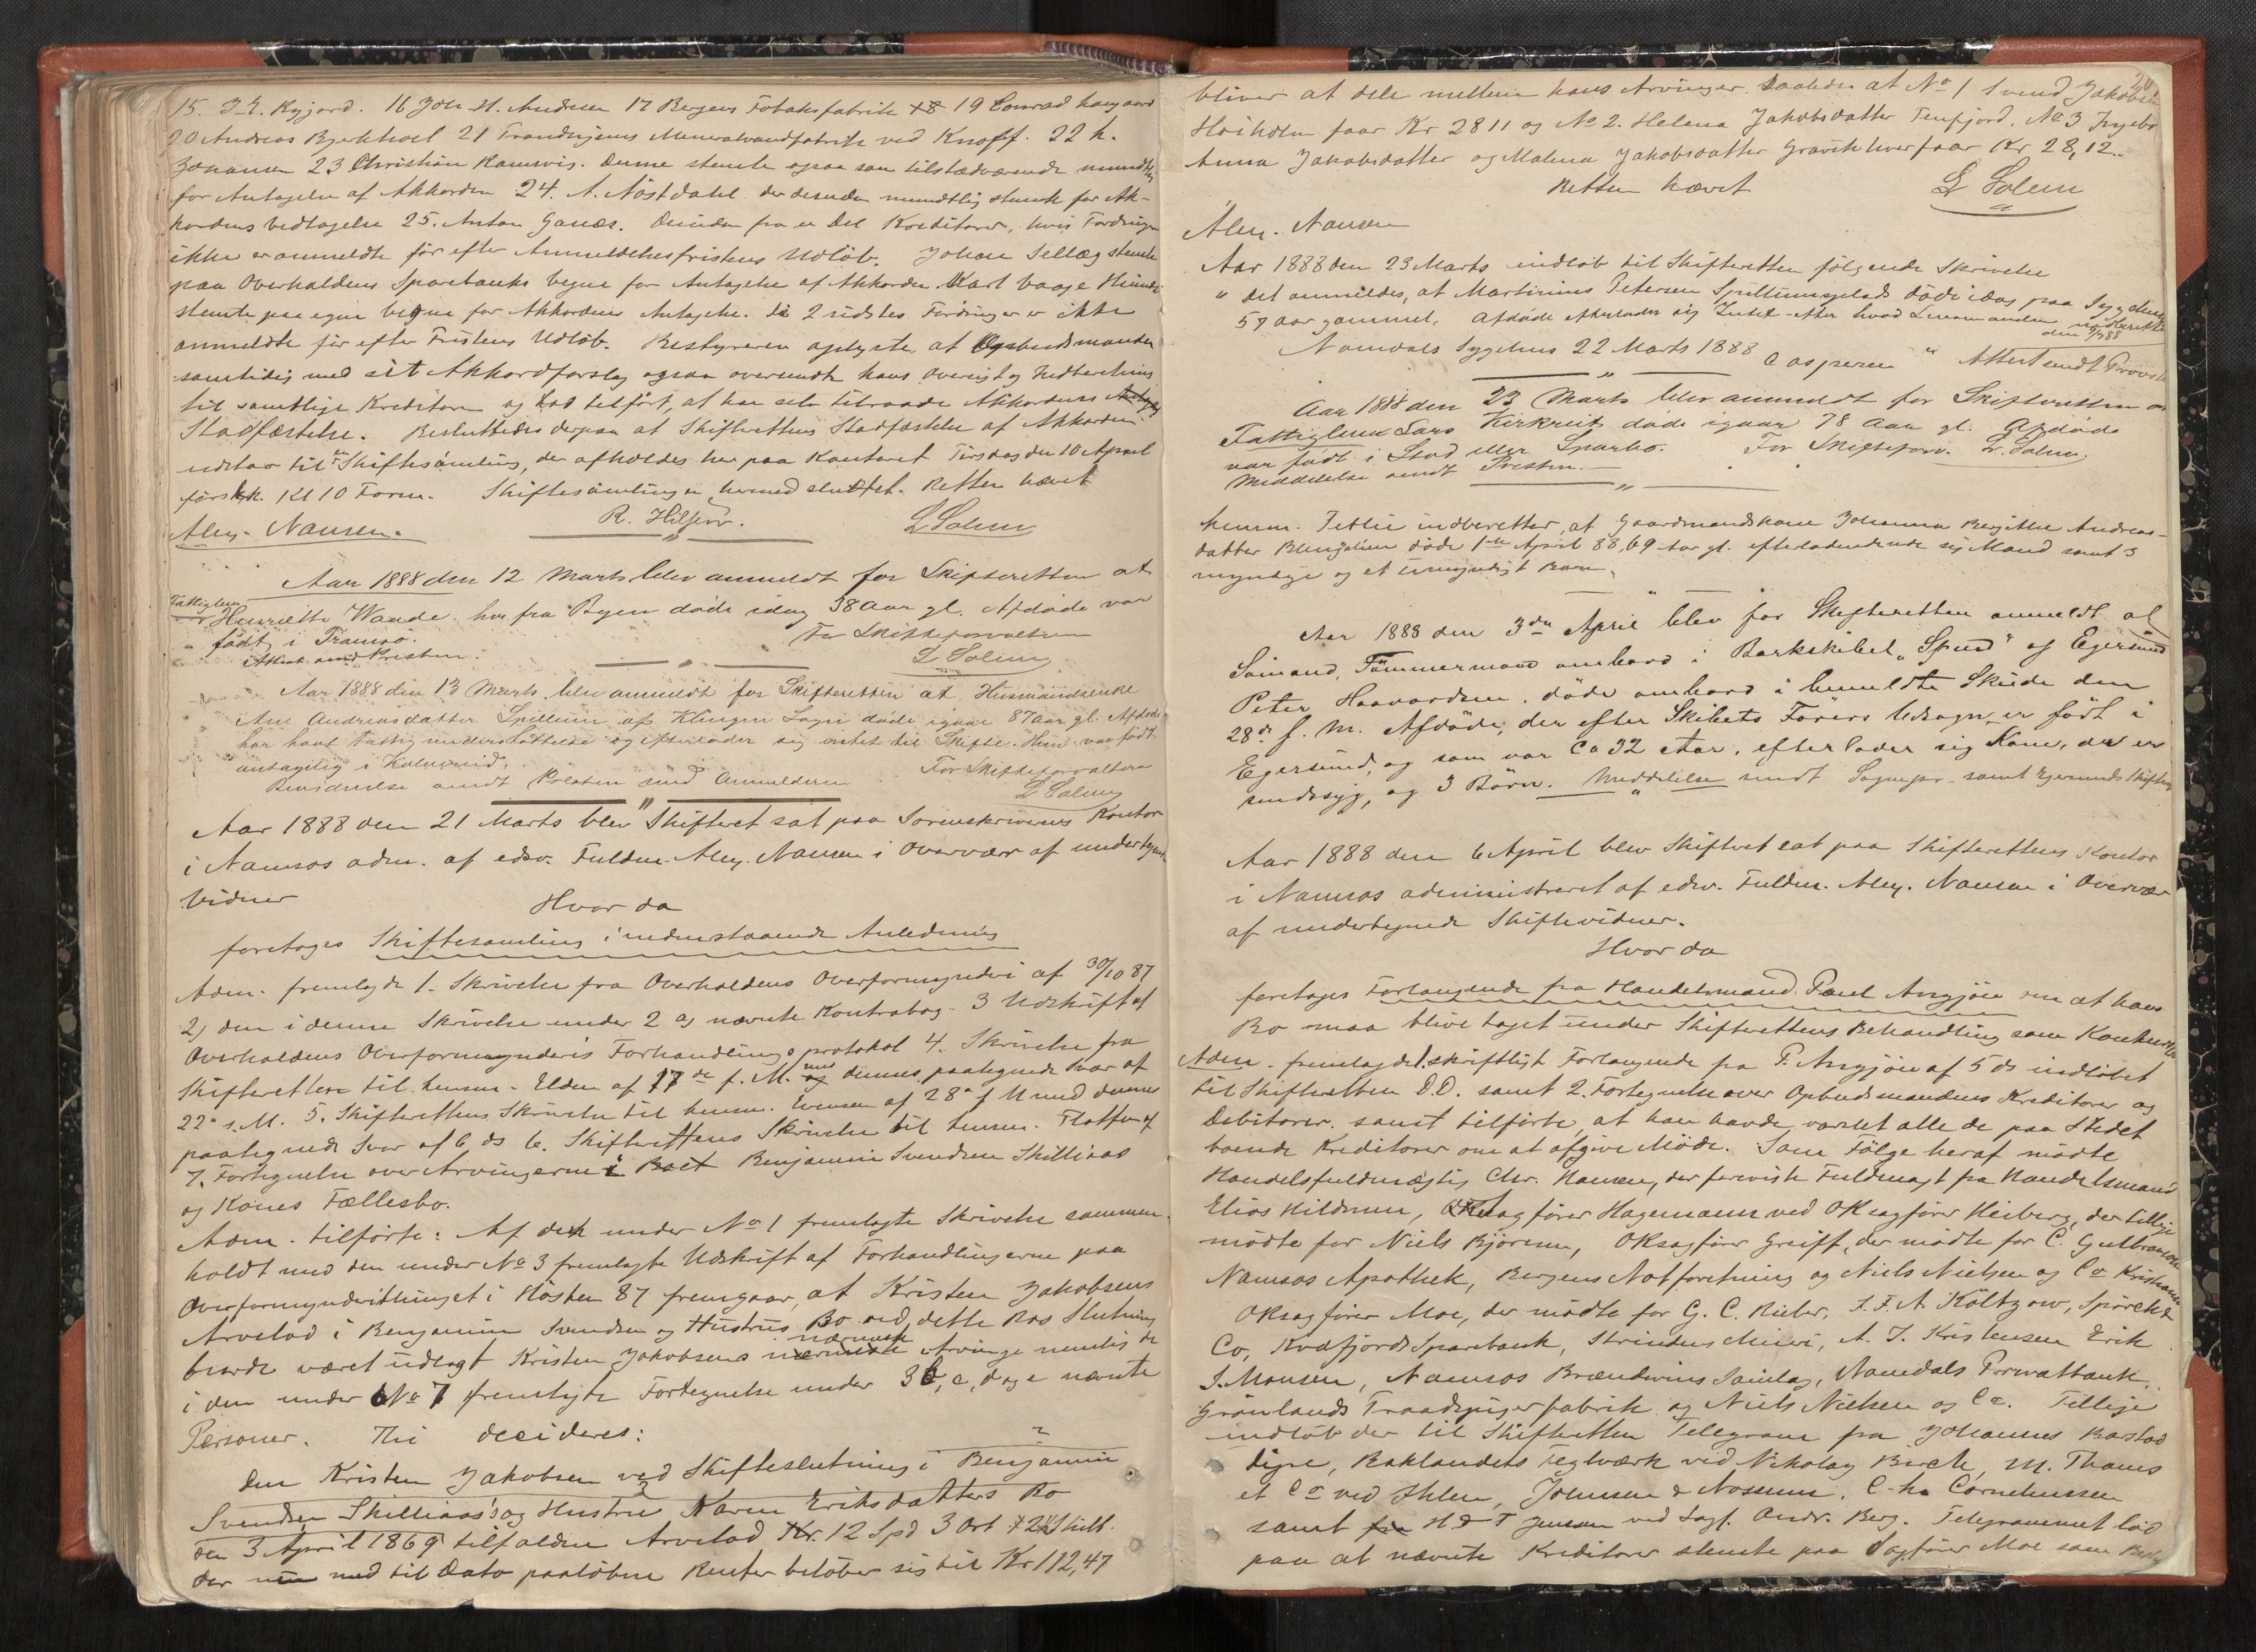 15. J. E. Kyjord. 16 Joh. H. Andresen 17 Bergens Tobaksfabrik 18 19 Conrad
20 Andreas Bjerkhoel 21 Trondhjems Mineralvandfabrik ved Knoff. 22 K.
Johansen 23 Christian Ramsvig. Denne stemte ogsaa som tilstedværende mundtlig
for Antagelse af Akkorden 24. A. Nöstdahl der desuden mundtlig stemte for Ak-
kordens Vedtagelse 25. Anton Ganæs. Desuden fra en Del Kreditorer, hvis Fordringer
ikke er anmeldte för efter Anmeldelsesfristens Udlöb. Johan Sellæg stemte
paa Overhaldens Sparebanks vegne for Antagelse af Akkorden. Karl Vaage
stemte paa egne vegne for Akkordens Antagelse. De 2 sidstes Fordringer er ikke
anmeldte för efter Fristens Udlöb. Bestyreren oplyste, at Opbudsmanden
samtidig med sit Akkordforslag ogsaa oversendte hans Oversigt og Indberetning
til samtlige Kreditorer og lod tilfört, at han selv tilraade Akkordens
Stadfæstelse. Besluttedes derpaa at Skifterettens Stadfæstelse af Akkorden
udstaar til en Skiftesamling, der afholdes her paa Kontoret Tirsdag den 10 April
förstk. Kl 10 Form. Skiftesamlingen hermed sluttet. Retten hævet
Alex. Nansen. R. Hilstrøm. L Solem
Aar 1888 den 12 Marts blev anmeldt for Skifteretten at
Fattiglem
Henriette Wande her fra Byen döde idag 38 Aar gl. Afdöde var
födt i Tromsö. For Skifteforvalteren
Attest sendt Presten. L Solem
Aar 1888 den 13 Marts blev anmeldt for Skifteretten at Husmandsenke
Ane Andreasdatter Spillum af Klingen Sogn döde igaar 87 Aar gl. Afdöde
har havt Fattigunderstöttelse og efterlader sig intet til Skifte. Hun var födt
antagelig i Kolvereid. For Skifteforvalteren
Bevidnelse sendt Presten med Anmelderen L Solem
Aar 1888 den 21 Marts blev Skifteret sat paa Sorenskriverens Kontor
i Namsos adm. af edsv. Fuldm. Alex. Nansen i Overvær af undertegnede
Vidner
Hvor da
foretages Skiftesamling i nedenstaaende Anledning
Adm. fremlagde 1. Skrivelse fra Overhaldens Overformynderi af 30/10 87
2) den i denne Skrivelse under 2 og nævnte Kontrabog. 3 Udskrift af
Overhaldens Overformynderis Forhandlingsprotokol 4. Skrivelse fra
Skifteretten til Lensm. Elden af 17de f. M. med dennes paategnede Svar af
22de s. M. 5. Skifterettens Skrivelse til Lensm. Evensen af 28de f M med dennes
paategnede Svar af 6 ds 6. Skifterettens Skrivelse til Lensm. Flotten af
7. Fortegnelse over Arvingerne i Boet Benjamin Svendsen Skilliaas
og Kones Fællesbo.
Adm. tilförte: Af den under No 1 fremlagte Skrivelse sammen-
holdt med den under No 3 fremlagte Udskrift af Forhandlingerne paa
Overformynderithinget i Hösten 87 fremgaar, at Kristen Jakobsens
Arvelod i Benjamin Svendsen og Hustrus Bo ved dette Bos Slutning
burde været udlagt Kristen Jakobsens nærmeste Arvinge nemlig de
i den under No 7 fremlagte Fortegnelse under 3 b, c, d og e nævnte
Personer. Thi decideres:
Den Kristen Jakobsen ved Skifteslutning i Benjamin
Svendsen Skilliaas's og Hustru Karen Eriksdatters Bo
den 3 April 1869 tilfaldne Arvelod Kr. 12 Spd 3 Ort 2 Skill.
der med til Dato paalöbne Renter belöber sig til Kr 112,47
20
bliver at dele mellem hans Arvinger saaledes at No 1 Svend Jakobsen
Höiholm faar Kr 28 11 og No 2. Helena Jakobsdatter Tenfjord. No 3 Ingebor
Anna Jakobsdatter og Malena Jakobsdatter Gravik hver faar Kr 28,12.
Retten hævet L Solem
Alex. Nansen
Aar 1888 den 23 Marts indlöb til Skifteretten følgende Skrivelse
" Det anmeldes, at Martinius Petersen Spillumsplads döde idag paa Sygehuset
57 aar gammel. Afdöde efterlader sig Intet efter hvad Lensmanden
Namdals Sygehus 22 Marts 1888 Caspersen " Attest sendt Provsten
Aar 1888 den 23 Marts blev anmeldt for Skifteretten at
Fattiglem Lars Kirkreit döde igaar 78 Aar gl. Afdöde
var födt i Stod eller Sparbo. For Skifteforv. L. Solem.
Meddelelse sendt Presten.
Lensm. Tetlie indberetter, at Gaardmandskone Johanna Bergitte Andreas-
datter Blengslien döde 1ste April 88, 69 Aar gl. efterladendende sig Mand samt 3
myndige og et umyndigt Barn.
Aar 1888 den 3die April blev for Skifteretten anmeldt at
Sömand, Tömmermand ombord i Barkskibet „Spind" af Egersund
Peter Haavardsen. döde ombord i bemeldte Skude den
28de f. M. Afdöde, der efter Skibets Förers Udsagn er födt i
Egersund, og som var ca 32 Aar, efterlader sig Kone, der er
sindssyg, og 3 Börn. Meddelelse sendt Sognepr. samt Egersunds Skifteret
Aar 1888 den 6 April blev Skifteret sat paa Skifterettens Kontor
i Namsos administreret af edsv. Fuldm. Alex. Nansen i Overvær
af undertegnede Skiftevidner.
Hvor da
foretages Forlangende fra Handelsmand Paul Angjöen om at hans
Bo maa blive taget under Skifterettens Behandling som Konkursbo
Adm. fremlagde 1. skriftligt Forlangende fra P. Angjöen af 5 ds indlöbet
til Skifteretten D.D. samt 2. Fortegnelse over Opbudsmandens Kreditorer og
Debitorer. samt tilförte, at han havde varslet alle de paa Stedet
boende Kreditorer om at afgive Möde. Som Fölge heraf mödte
Handelsfuldmægtig Chr. Hansen, der foreviste Fuldmagt fra Handelsmand
Elias Kildrum, OKsagförer Hagemann ved OKsagförer Heiberg, der tillige
mödte for Niels Björum, OKsagförer Greiff, der mödte for C. Gulbransen
Namsos Apothek, Bergens Notforretning og Niels Nielsen og Co Kristiania
OKsagförer Moe, der mödte for G. C. Rieber, J. F. A. Költzow, Spörck &
Co, Kvafjords Sparebank, Strindens Mineri, A. J. Kristensen Erik
J. Monsen, Namsos Brændevins Samlag, Namdals Privatbank,
Grönlands Traadspigerfabrik og Niels Nielsen og Co. Tillige
indlöb der til Skifteretten Telegram fra Johannes Barstad
Digre, Baklandets Teglværk ved Nikolay Birch, M. Thams
et Co ved Ihlen, Johnsen & Nossum, C. Cornelinssen
samt H & T Jensen ved Sagf. Andr. Berg. Telegrammet löd
paa at nævnte Kreditorer stemte paa Sagförer Moe som